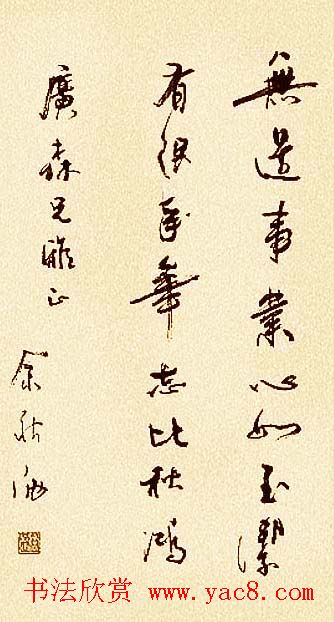 無邊事業心如玉潔
有限年華志比秋鴻
廣森兄雅正
余秋雨
书法欣赏 www.yac8.com